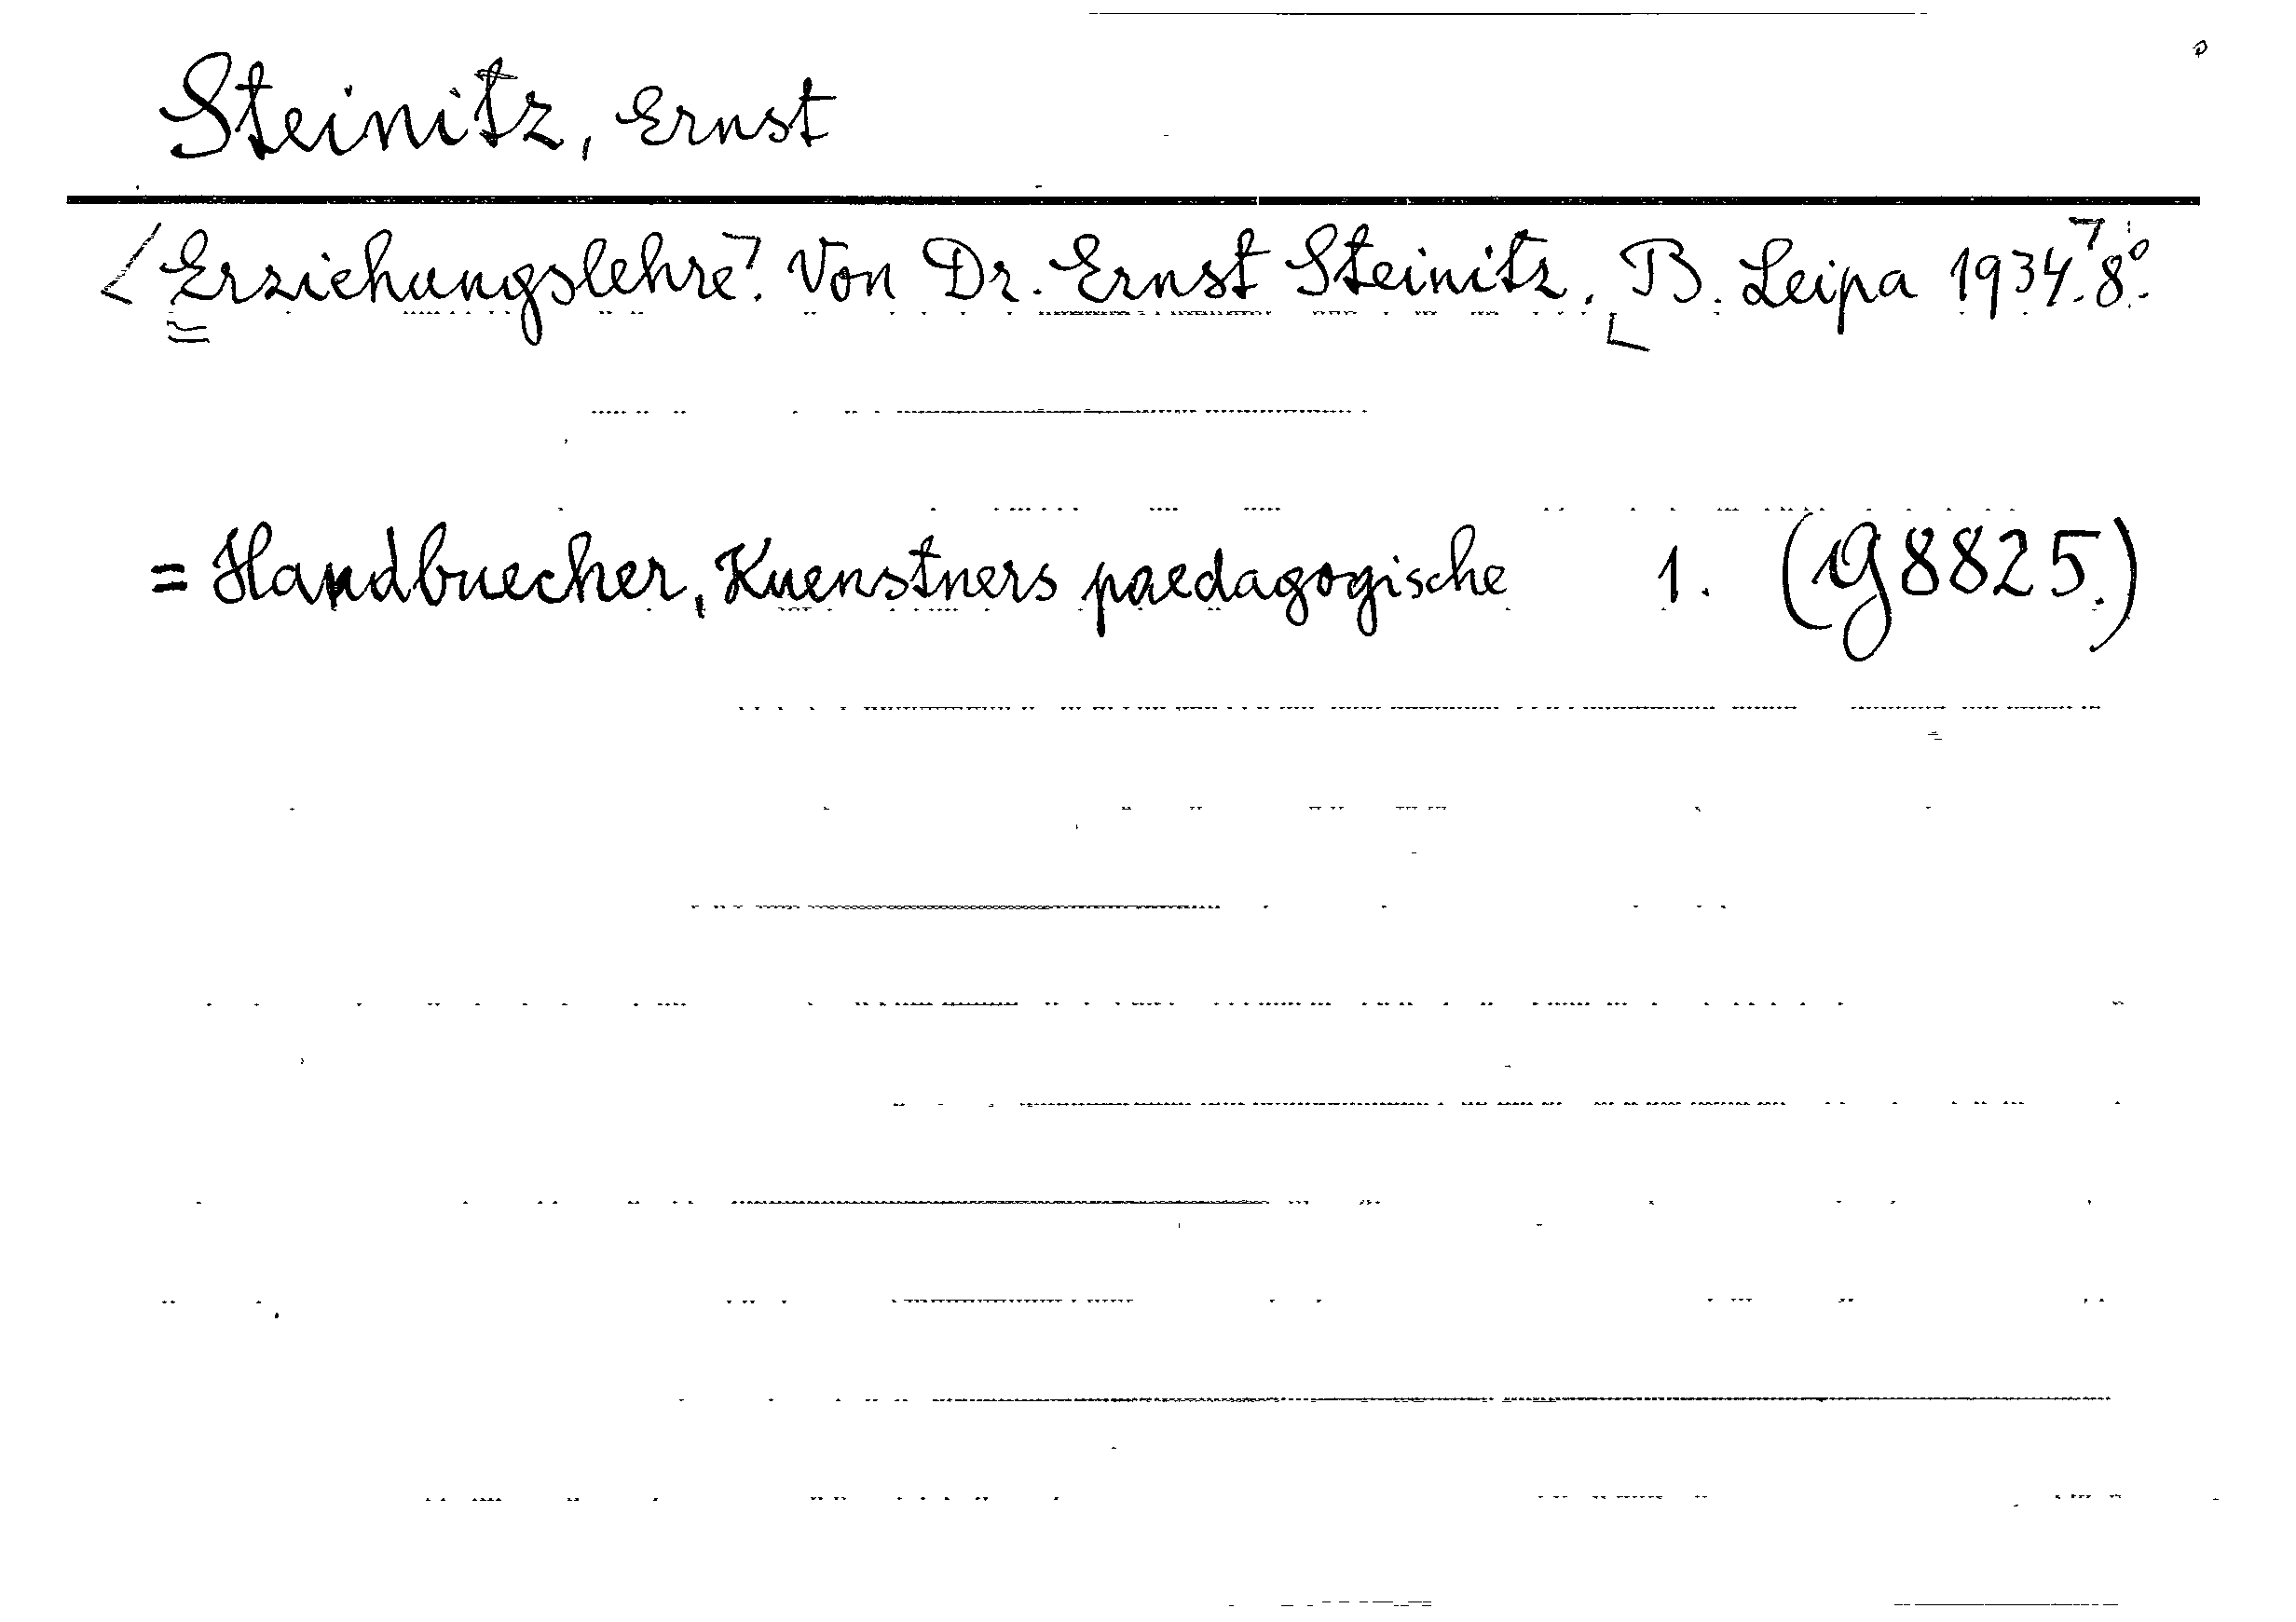 Steinitz, Ernst
Erziehungslehre. Von Dr. Ernst Steinitz. B. Leipa 1934. 8°.
= Handbuecher, Kuenstners paedagogische 1. (g8825.)